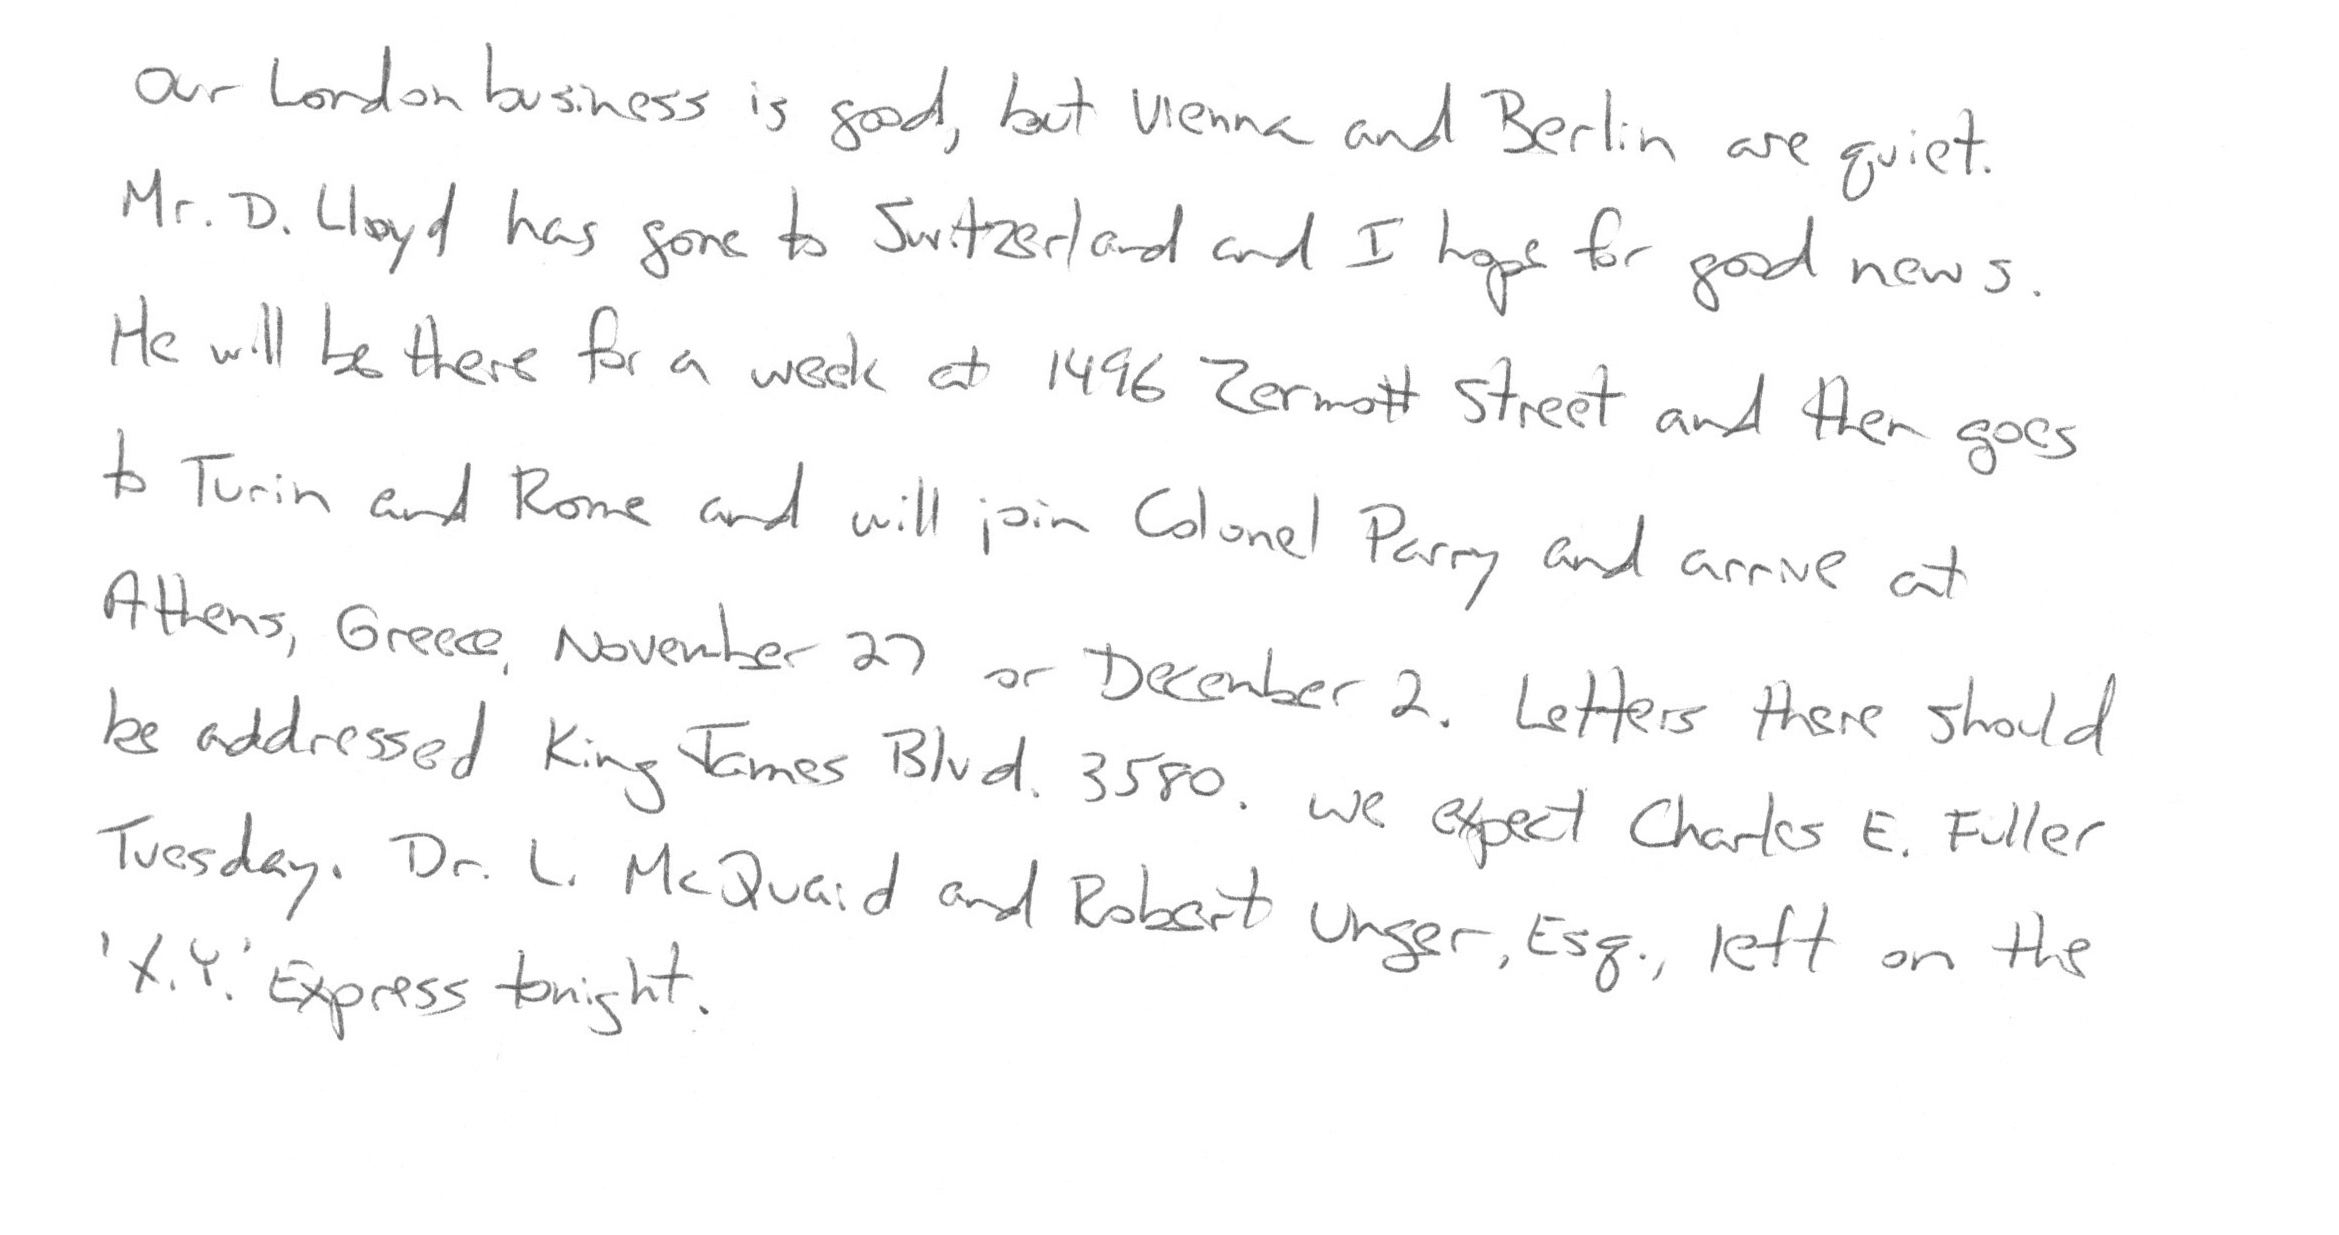 Our London business is good, but Vienna and Berlin are quiet.
Mr. D. Lloyd has gone to Switzerland and I hope for good news.
He will be there for a week at 1496 Zermott Street and then goes
to Turin and Rome and will join Colonel Parry and arrive at
Athens, Greece, November 27 or December 2. Letters there should
be addressed King James Blvd. 3580. We expect Charles E. Fuller
Tuesday. Dr. L. McQuaid and Robert Unger, Esq., left on the
'X.Y.' Express tonight.